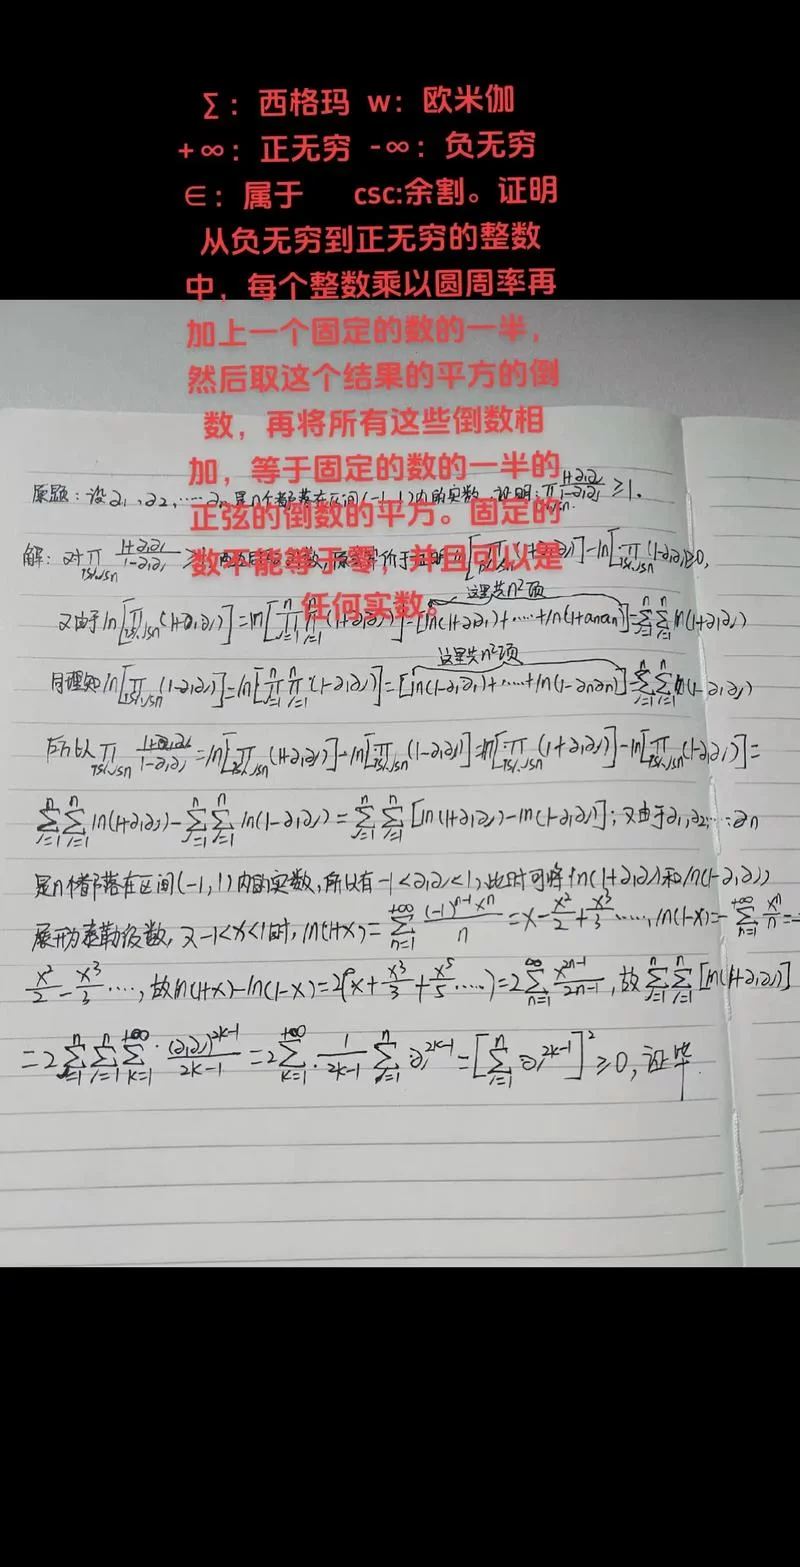 ∑：西格玛 w：欧米伽
+∞：正无穷 -∞：负无穷
∈：属于 csc:余割。证明
从负无穷到正无穷的整数
中，每个整数乘以圆周率再
加上一个固定的数的一半，
然后取这个结果的平方的倒
数，再将所有这些倒数相
加，等于固定的数的一半的
正弦的倒数的平方。固定的
数不能等于零，并且可以是
任何实数。
原题：设a₁、a₂、……aₙ是n个都落在区间(-1,1)内的实数，证明：∏1≤i,j≤n (1+aᵢaⱼ)/(1-aᵢaⱼ) ≥1.
解：对∏1≤i,j≤n (1+aᵢaⱼ)/(1-aᵢaⱼ) ln[∏1≤i,j≤n(1+aᵢaⱼ)]-ln[∏1≤i,j≤n(1-aᵢaⱼ)]≥0,
这里共n²项
又由于ln[∏1≤i,j≤n(1+aᵢaⱼ)]=ln[∏ⁿj=1∏ⁿi=1(1+aᵢaⱼ)]=[ln(1+a₁a₁)+……+ln(1+aₙaₙ)]=∑ⁿj=1∑ⁿi=1 ln(1+aᵢaⱼ)
这里共n²项
同理知ln[∏1≤i,j≤n(1-aᵢaⱼ)]=ln[∏ⁿj=1∏ⁿi=1(1-aᵢaⱼ)]=[ln(1-a₁a₁)+……+ln(1-aₙaₙ)]=∑ⁿj=1∑ⁿi=1 ln(1-aᵢaⱼ)
所以∏1≤i,j≤n (1+aᵢaⱼ)/(1-aᵢaⱼ)=ln[∏1≤i,j≤n(1+aᵢaⱼ)]-ln[∏1≤i,j≤n(1-aᵢaⱼ)]=ln[∏1≤i,j≤n(1+aᵢaⱼ)]-ln[∏1≤i,j≤n(1-aᵢaⱼ)]=
∑ⁿj=1∑ⁿi=1 ln(1+aᵢaⱼ)-∑ⁿj=1∑ⁿi=1 ln(1-aᵢaⱼ)=∑ⁿj=1∑ⁿi=1[ln(1+aᵢaⱼ)-ln(1-aᵢaⱼ)]；又由于a₁,a₂,……aₙ
是n个都落在区间(-1,1)内的实数，所以有-1<aᵢaⱼ<1，此时可将ln(1+aᵢaⱼ)和ln(1-aᵢaⱼ)
展开为泰勒级数，又-1<x<1时，ln(1+x)=∑⁺∞n=1 (-1)ⁿ⁻¹xⁿ/n=x-x²/2+x³/3……，ln(1-x)=-∑⁺∞n=1 xⁿ/n=-
x²/2-x³/3……，故ln(1+x)-ln(1-x)=2(x+x³/3+x⁵/5……)=2∑∞n=1 x²ⁿ⁻¹/2n-1，故∑ⁿj=1∑ⁿi=1[ln(1+aᵢaⱼ)]
=2∑ⁿj=1∑ⁿi=1∑⁺∞k=1·(aᵢaⱼ)²ᵏ⁻¹/2k-1=2∑⁺∞k=1·1/2k-1∑ⁿj=1 aⱼ²ᵏ⁻¹=[∑ⁿi=1 aᵢ²ᵏ⁻¹]²≥0，证毕